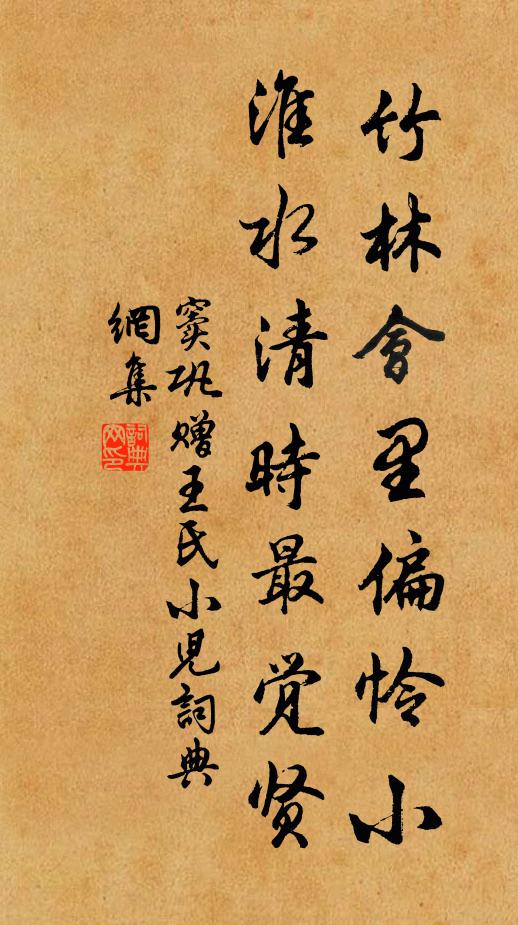 竹林會里偏怜小
淮水清時最觉贤
窦巩赠王氏小児詞典
網集
詞典網印